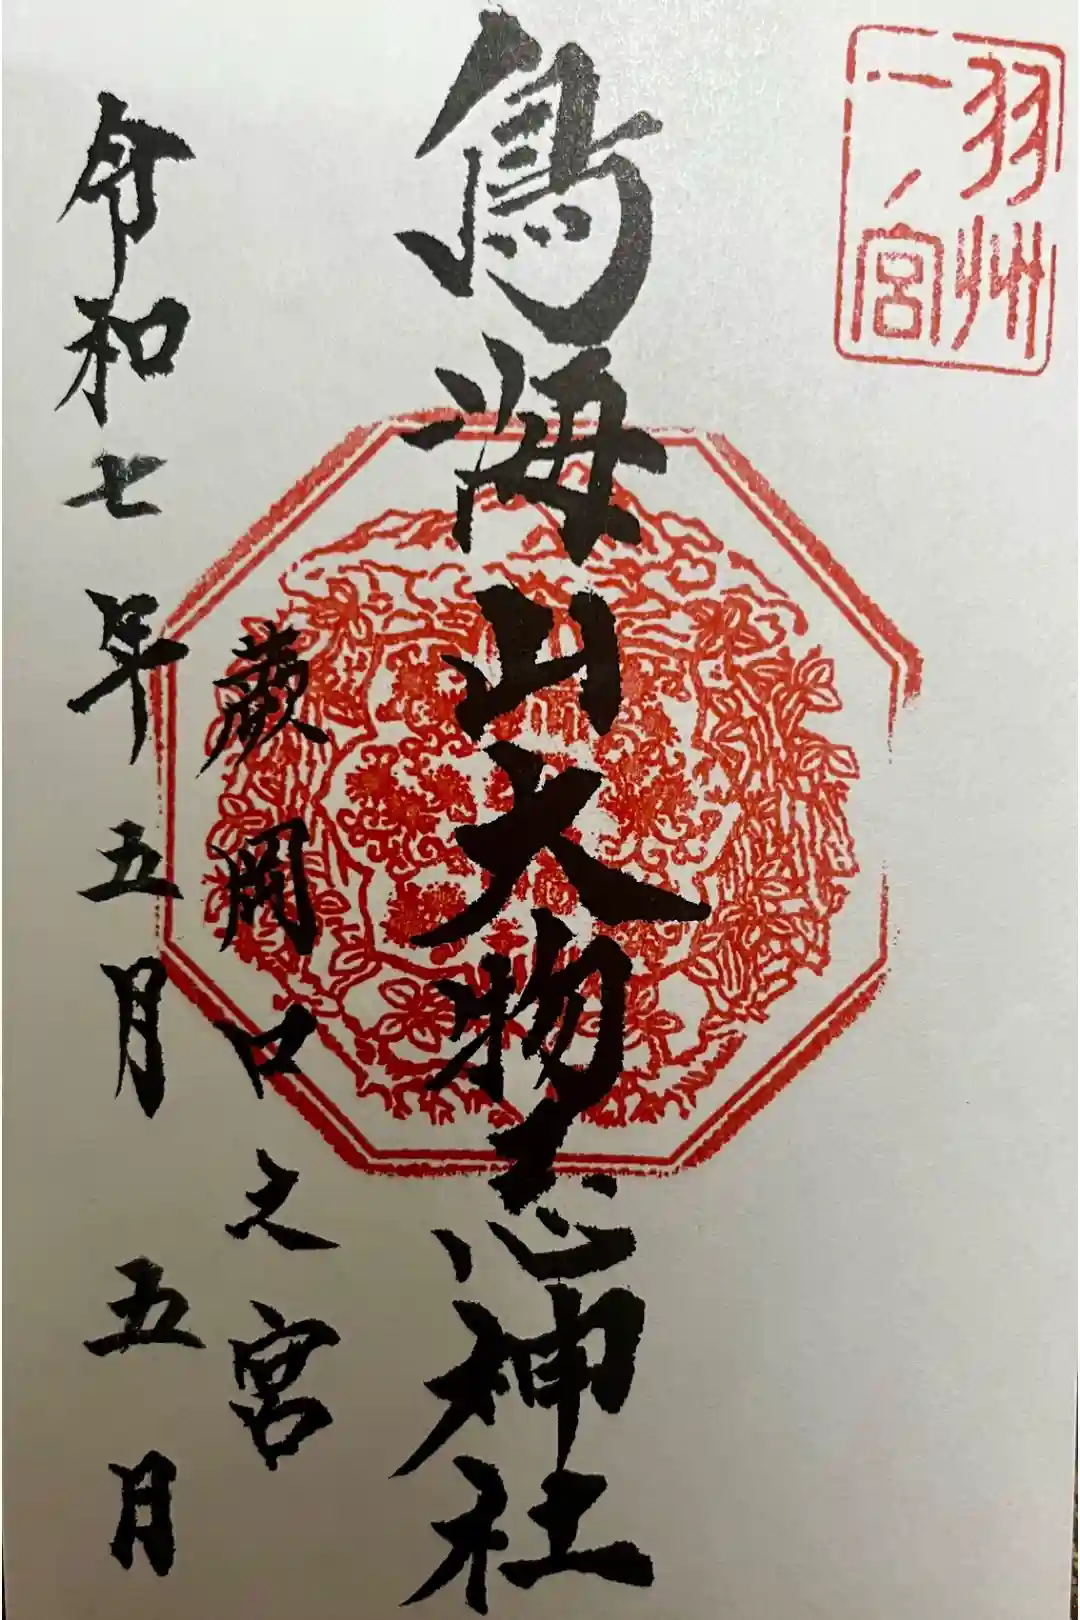 羽州
一ノ宮
鳥海山大物忌神社
蕨岡口之宮
令和七年五月五日